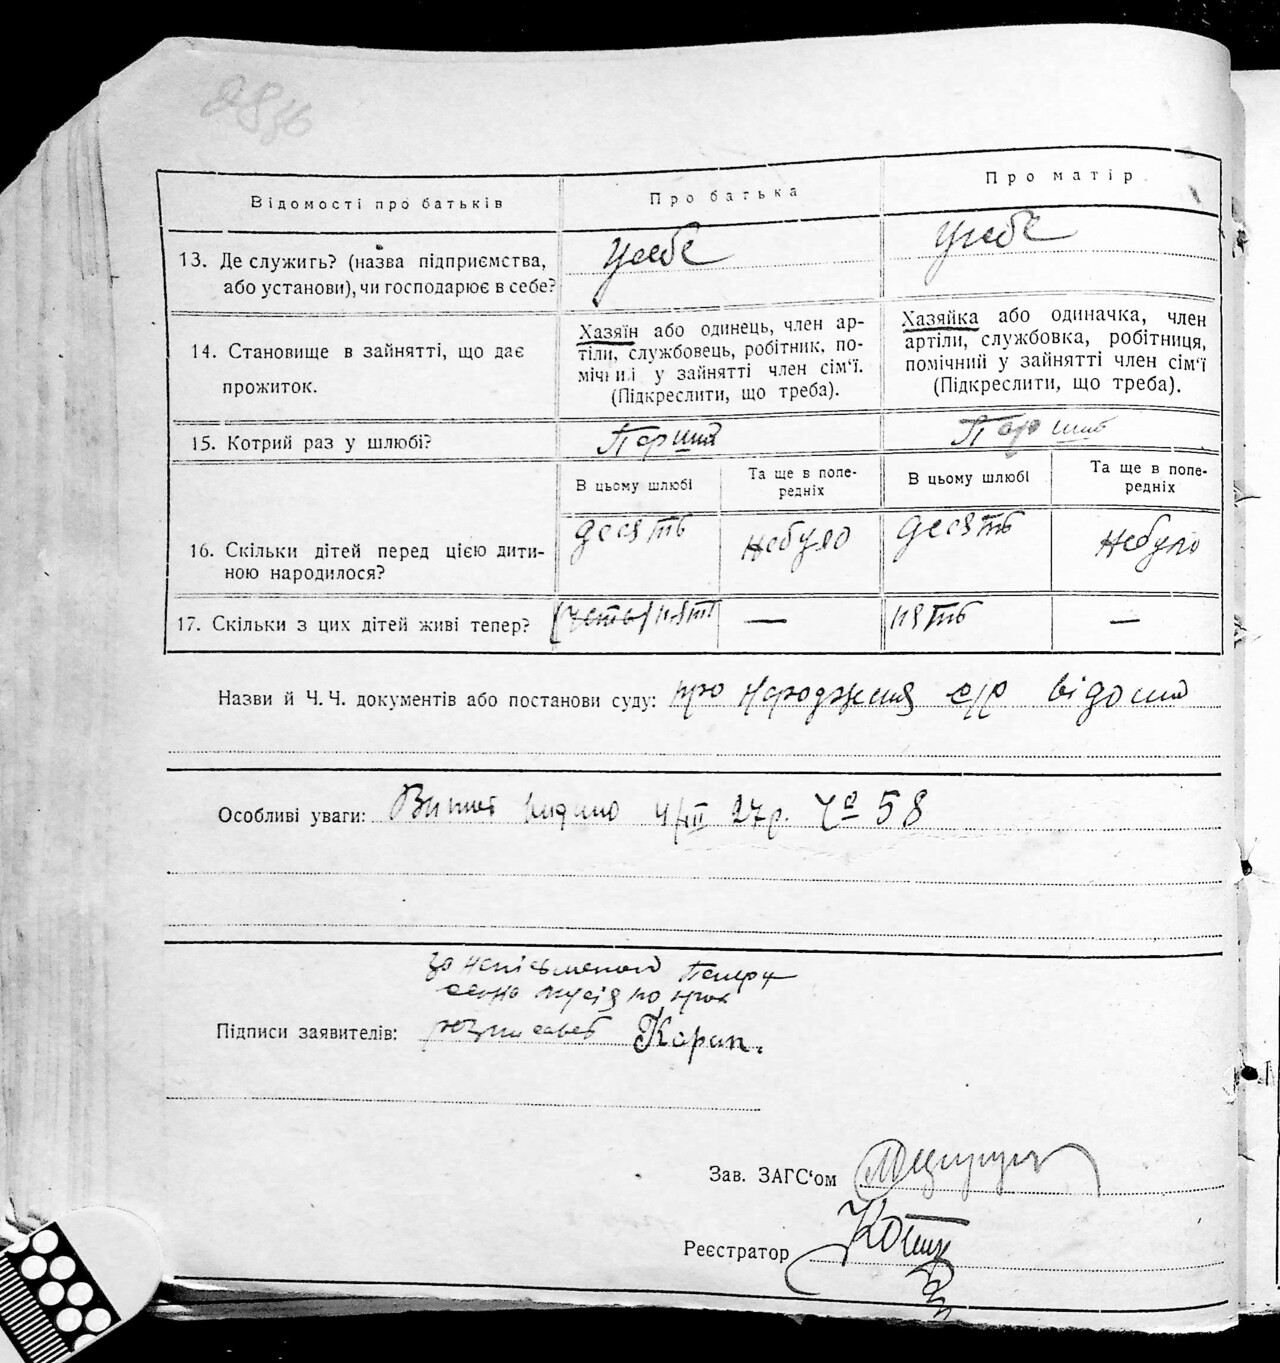 Відомості про батьків
Про батька
Про матір
13. Де служить? (назва підприємства,
або установи), чи господарює в себе?
усебе
усебе
14. Становище в зайнятті, що дає
прожиток.
Хазяїн або одинець, член ар-
тіли, службовець, робітник, по-
мічний у зайнятті член сім'ї.
(Підкреслити, що треба).
Хазяйка або одиначка, член
артіли, службовка, робітниця,
помічний у зайнятті член сім'ї
(Підкреслити, що треба).
15. Котрий раз у шлюбі?
Перший
Перший
В цьому шлюбі
Та ще в попе-
редніх
В цьому шлюбі
Та ще в попе-
редніх
16. Скільки дітей перед цією дити-
ною народилося?
десять
небуло
десять
небуло
17. Скільки з цих дітей живі тепер?
пять
—
пять
—
Назви й Ч. Ч. документів або постанови суду: про народження с/р відомий
Особливі уваги: 27р. № 58
Підписи заявителів:
Зав. ЗАГС'ом
Реєстратор